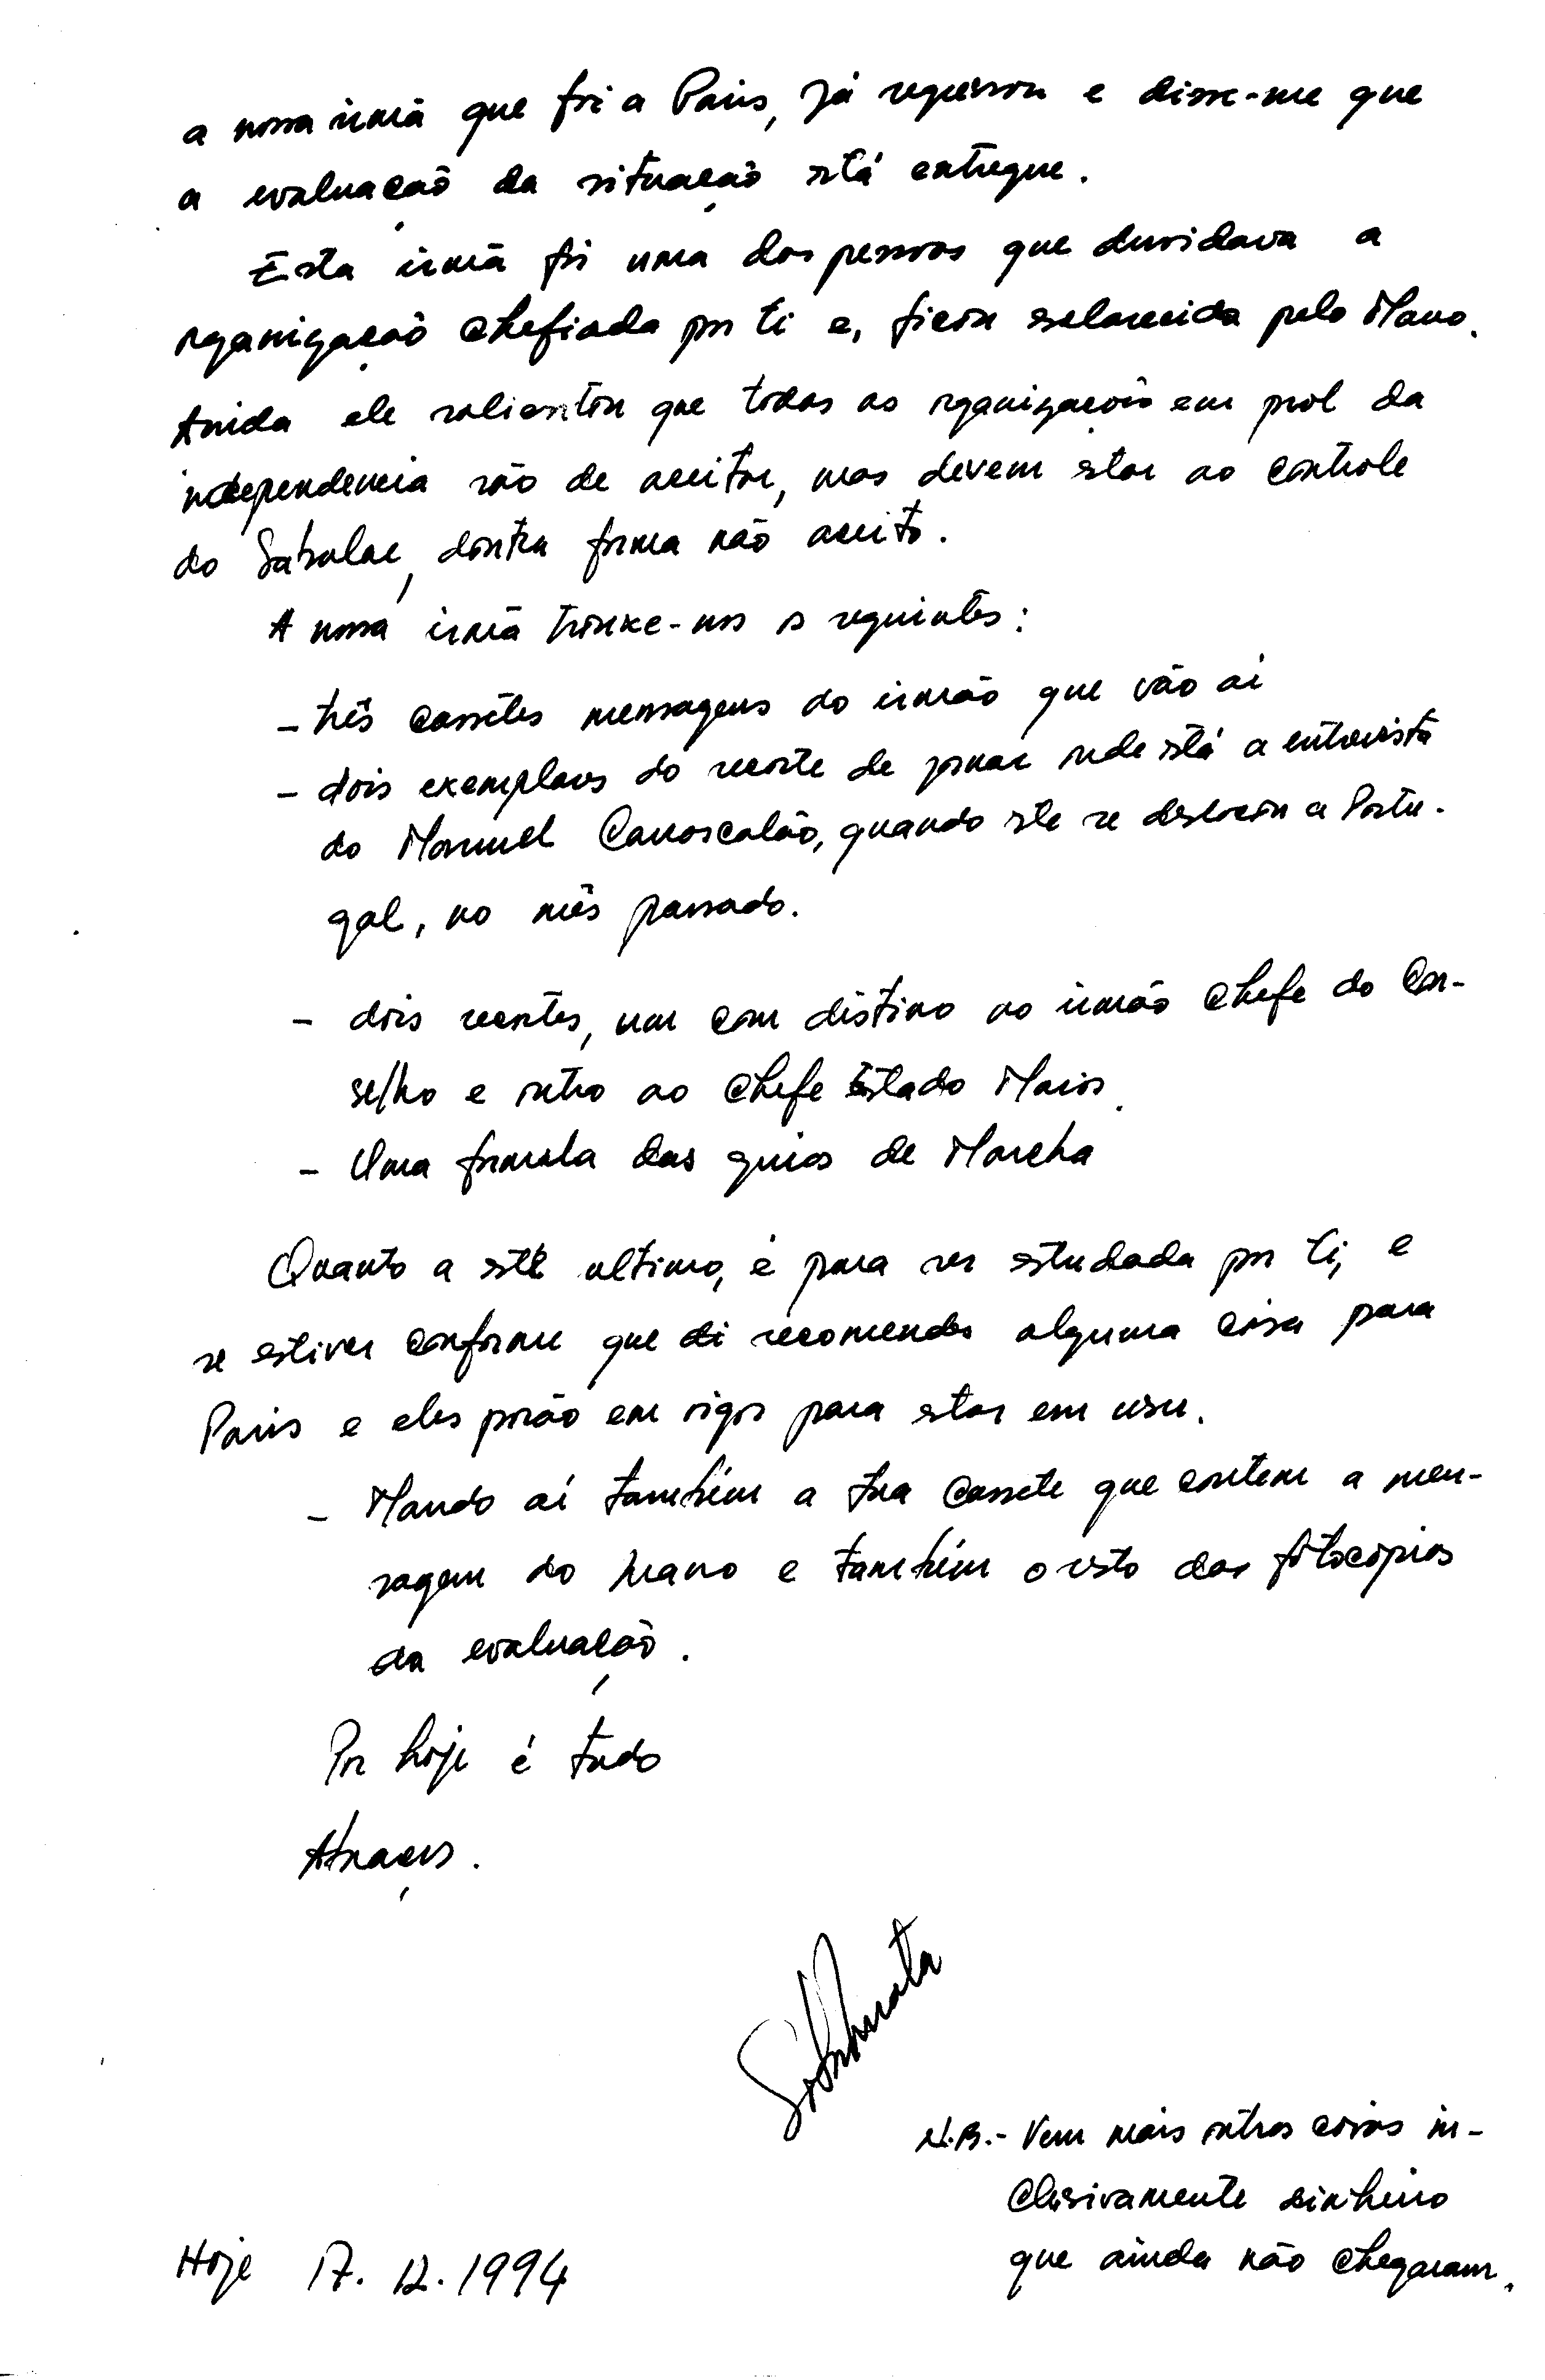 a nossa irmã que foi a Paris, já regressou e disse-me que
a evaluação da situação está entregue.
Esta irmã foi uma das pessoas que duvidava a
organização chefiada por ti e, ficou esclarecida pelo Mano.
Ainda ele salientou que todas as organizações em prol da
independencia são de aceitar, mas devem estar ao controle
do Sabalae, doutra forma não aceito.
A nossa irmã trouxe-nos os seguintes:
- três cassetes mensagens do irmão que vão aí
- dois exemplares do recorte de jornal onde está a entrevista
do Manuel Carrascalão, quando este se deslocou a Portu-
gal, no mês passado.
- dois recortes, um com distino ao irmão chefe do Con-
selho e outro ao chefe Estado Maior.
- Uma formula das guias de Marcha
Quanto a este ultimo, é para ser estudada por ti, e
se estiver conforme que di recomendes alguma coisa para
Paris e eles porão em vigor para estar em uso.
- Mando aí também a tua cassete que contem a men-
sagem do mano e também o resto das fotocopias
da evaluação.
Por hoje é tudo
Abraços.
N.B.- Vem mais outras coisas in-
clusivamente dinheiro
que ainda não chegaram.
Hoje 17. 12. 1994